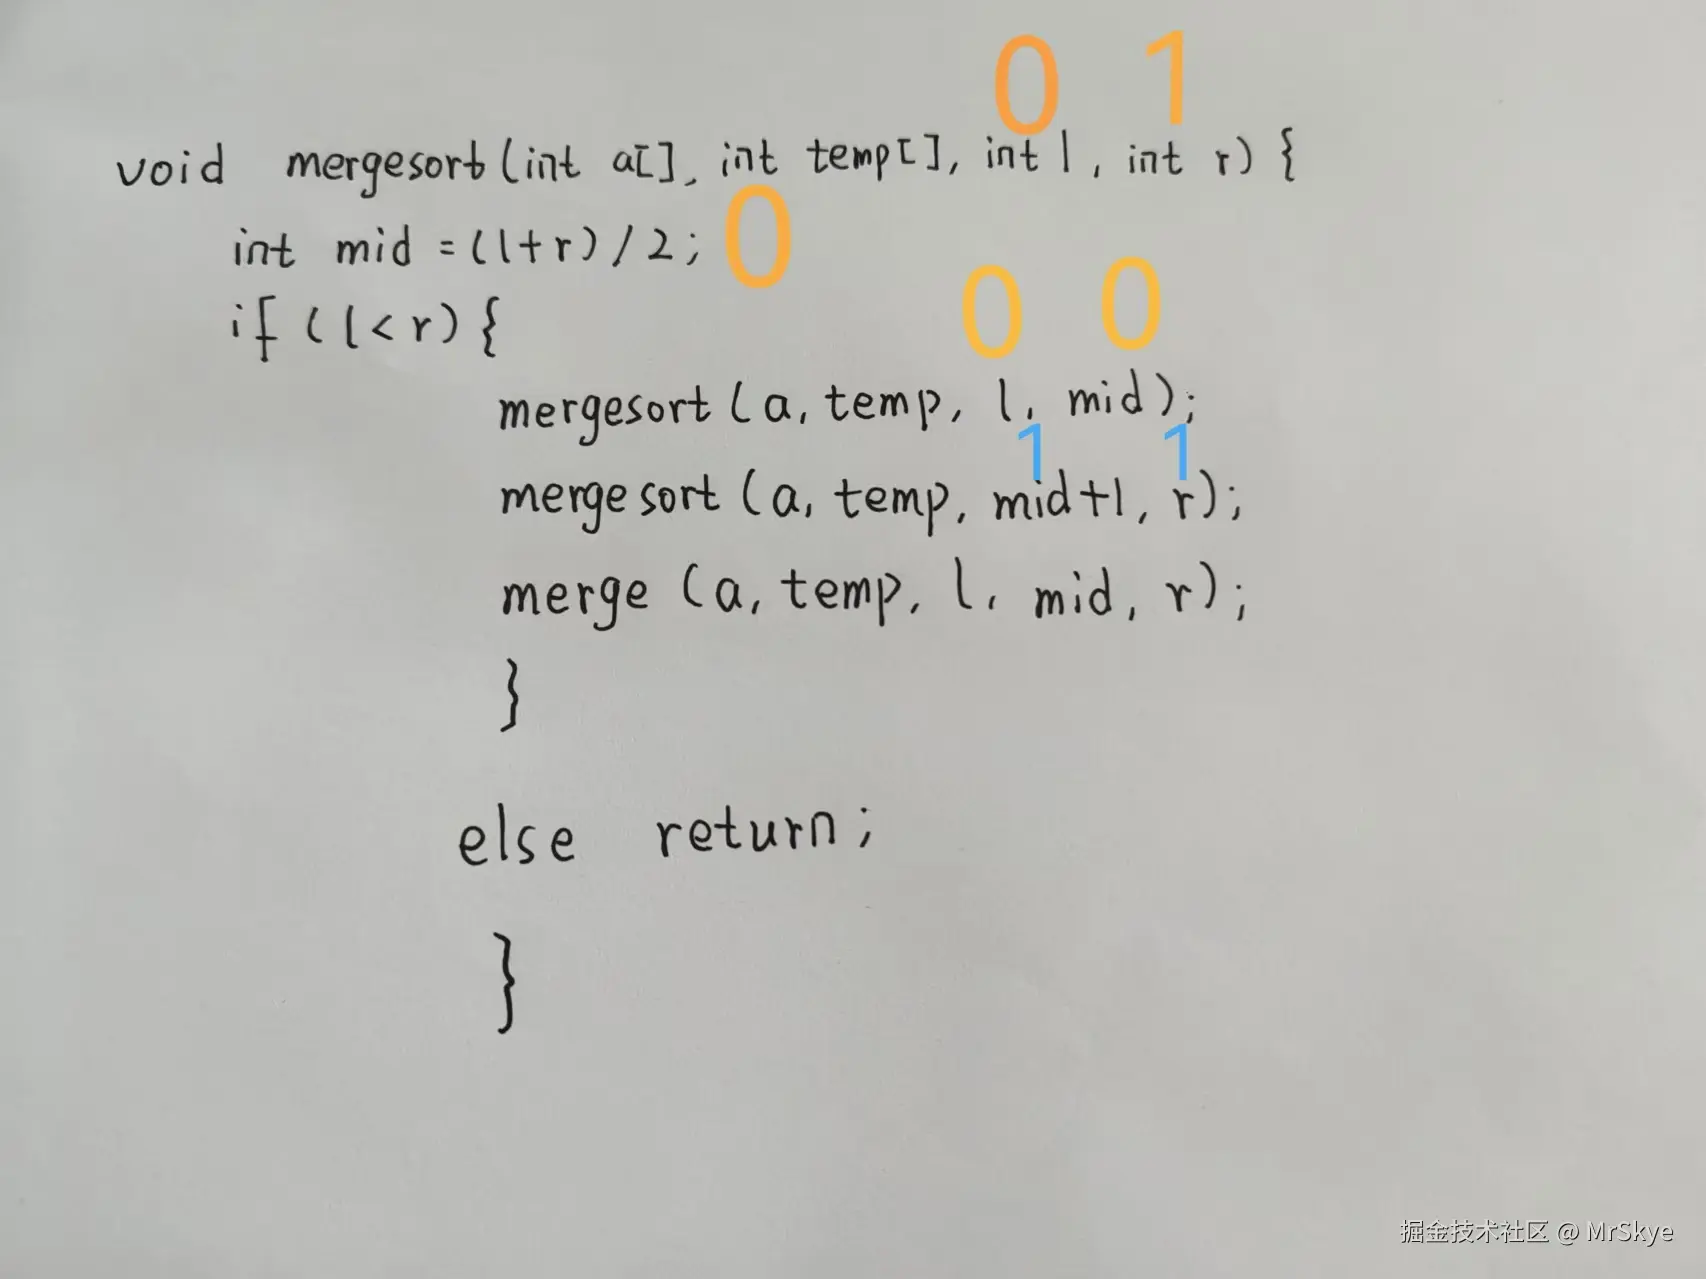 0 1
void mergesort(int a[], int temp[], int l, int r) {
int mid = (l+r)/2; 0
if (l<r) {
0 0
mergesort(a, temp, l, mid);
1 1
mergesort(a, temp, mid+1, r);
merge(a, temp, l, mid, r);
}
else return;
}
掘金技术社区 @ MrSkye